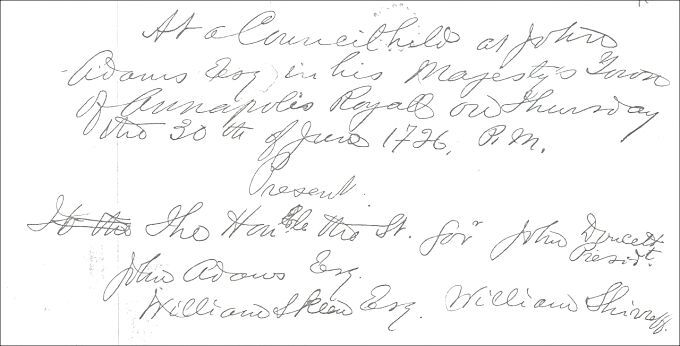 At a Council held at John
Adams Esq in his Majestys Town
of Annapolis Royall on Thursday
the 30th of June 1726, P.M.
Present.
To the The Honble the Lt. Govr John Doucett
Presidt.
John Adams Esq.
William Skeen Esq. William Shirreff.